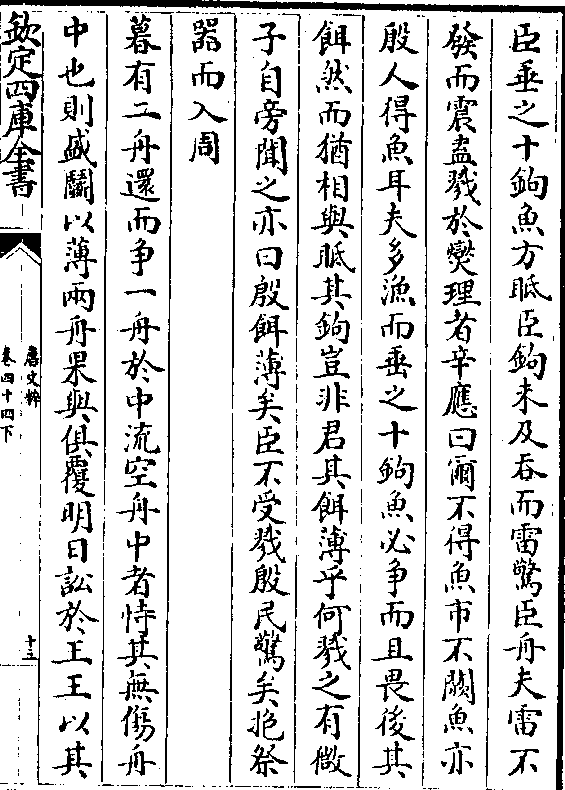 臣垂之十鉤魚方䑛臣鉤未及吞而雷驚臣舟夫雷不
發而震盍戮於爕理者辛應曰爾不得魚市不闕魚亦
殷人得魚耳夫多漁而垂之十鉤魚必爭而且畏後其
餌然而猶相與䑛其鉤豈非君其餌薄乎何戮之有微
子自旁聞之亦曰殷餌薄矣臣不受戮殷民驚矣抱祭
器而入周
暮有二舟還而爭一舟於中流空舟中者恃其無傷舟
中也則盛鬭以薄兩舟果與俱覆明日訟於王王以其
欽定四庫全書
唐文粹
卷四十四下
十三